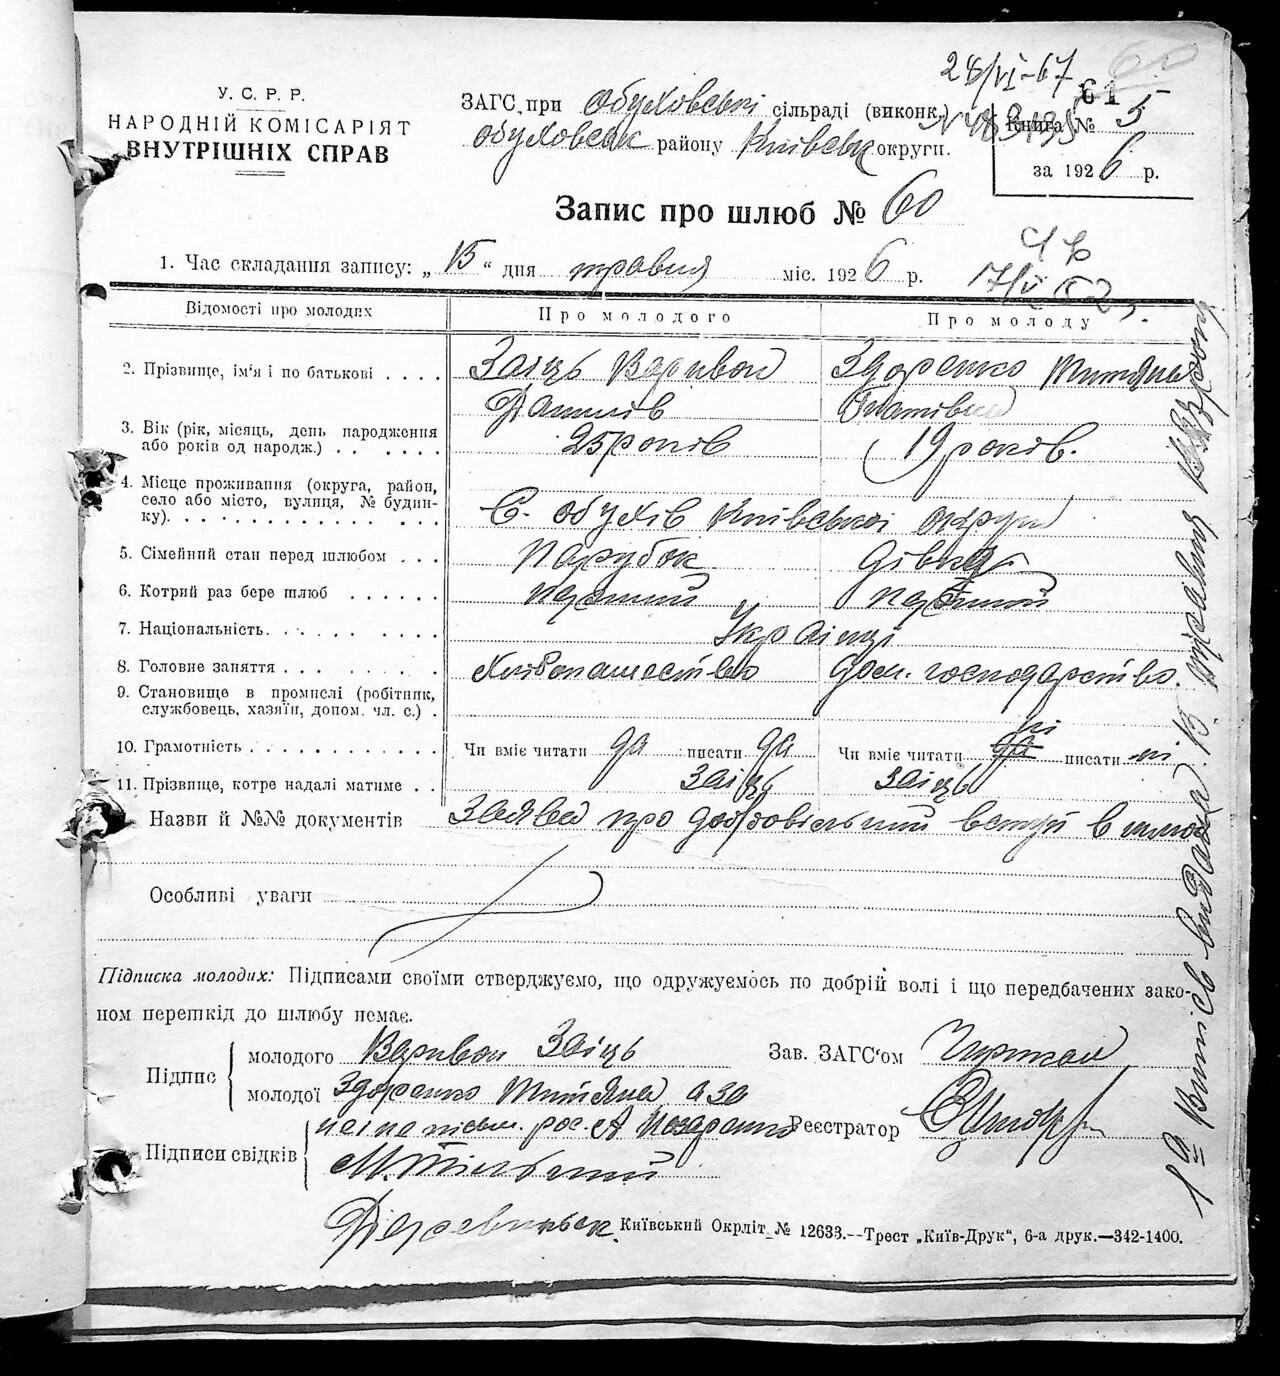 28/VI-67
60
61
У. С. Р. Р.
НАРОДНІЙ КОМІСАРІЯТ
ВНУТРІШНІХ СПРАВ
ЗАГС при Обуховські сільраді (виконк.)
Обуховськ району Київськ округи.
Книга № 5
за 1926 р.
Запис про шлюб № 60
1. Час складання запису: „15“ дня травня міс. 1926 р.
Відомості про молодих
Про молодого
Про молоду
2. Прізвище, ім'я і по батькові . . . .
Заіць Варивон
Данилів
Здоренко Титяна
Гнатівна
3. Вік (рік, місяць, день народження
або років од народж.) . . . . . .
25 років
19 років.
4. Місце проживання (округа, район,
село або місто, вулиця, № будин-
ку). . . . . . . . . . . . . . . .
С. Обухів Київської округи
5. Сімейний стан перед шлюбом . . .
парубок
дівка
6. Котрий раз бере шлюб . . . . . .
перший
перший
7. Національність. . . . . . . . .
Українці
8. Головне заняття . . . . . . . .
Хлібопашество
дом. господарство.
9. Становище в промислі (робітник,
службовець, хазяїн, допом. чл. с.) .
10. Грамотність . . . . . . . . . . . .
Чи вміє читати да писати да
Чи вміє читати да ні писати ні
11. Прізвище, котре надалі матиме . .
Заіць
Заіць
Назви й №№ документів
Заява про добровільний вступ в шлюб
Особливі уваги
Підписка молодих: Підписами своїми стверджуємо, що одружуємось по добрій волі і що передбачених зако-
ном перешкід до шлюбу немає.
Підпис
молодого Варивон Заіць
молодої Здоренко Титяна а за
Зав. ЗАГС'ом
неї не письм. рос.
Реєстратор
Підписи свідків
Київський Окрліт № 12633.—Трест „Київ-Друк“, 6-а друк.—342-1400.